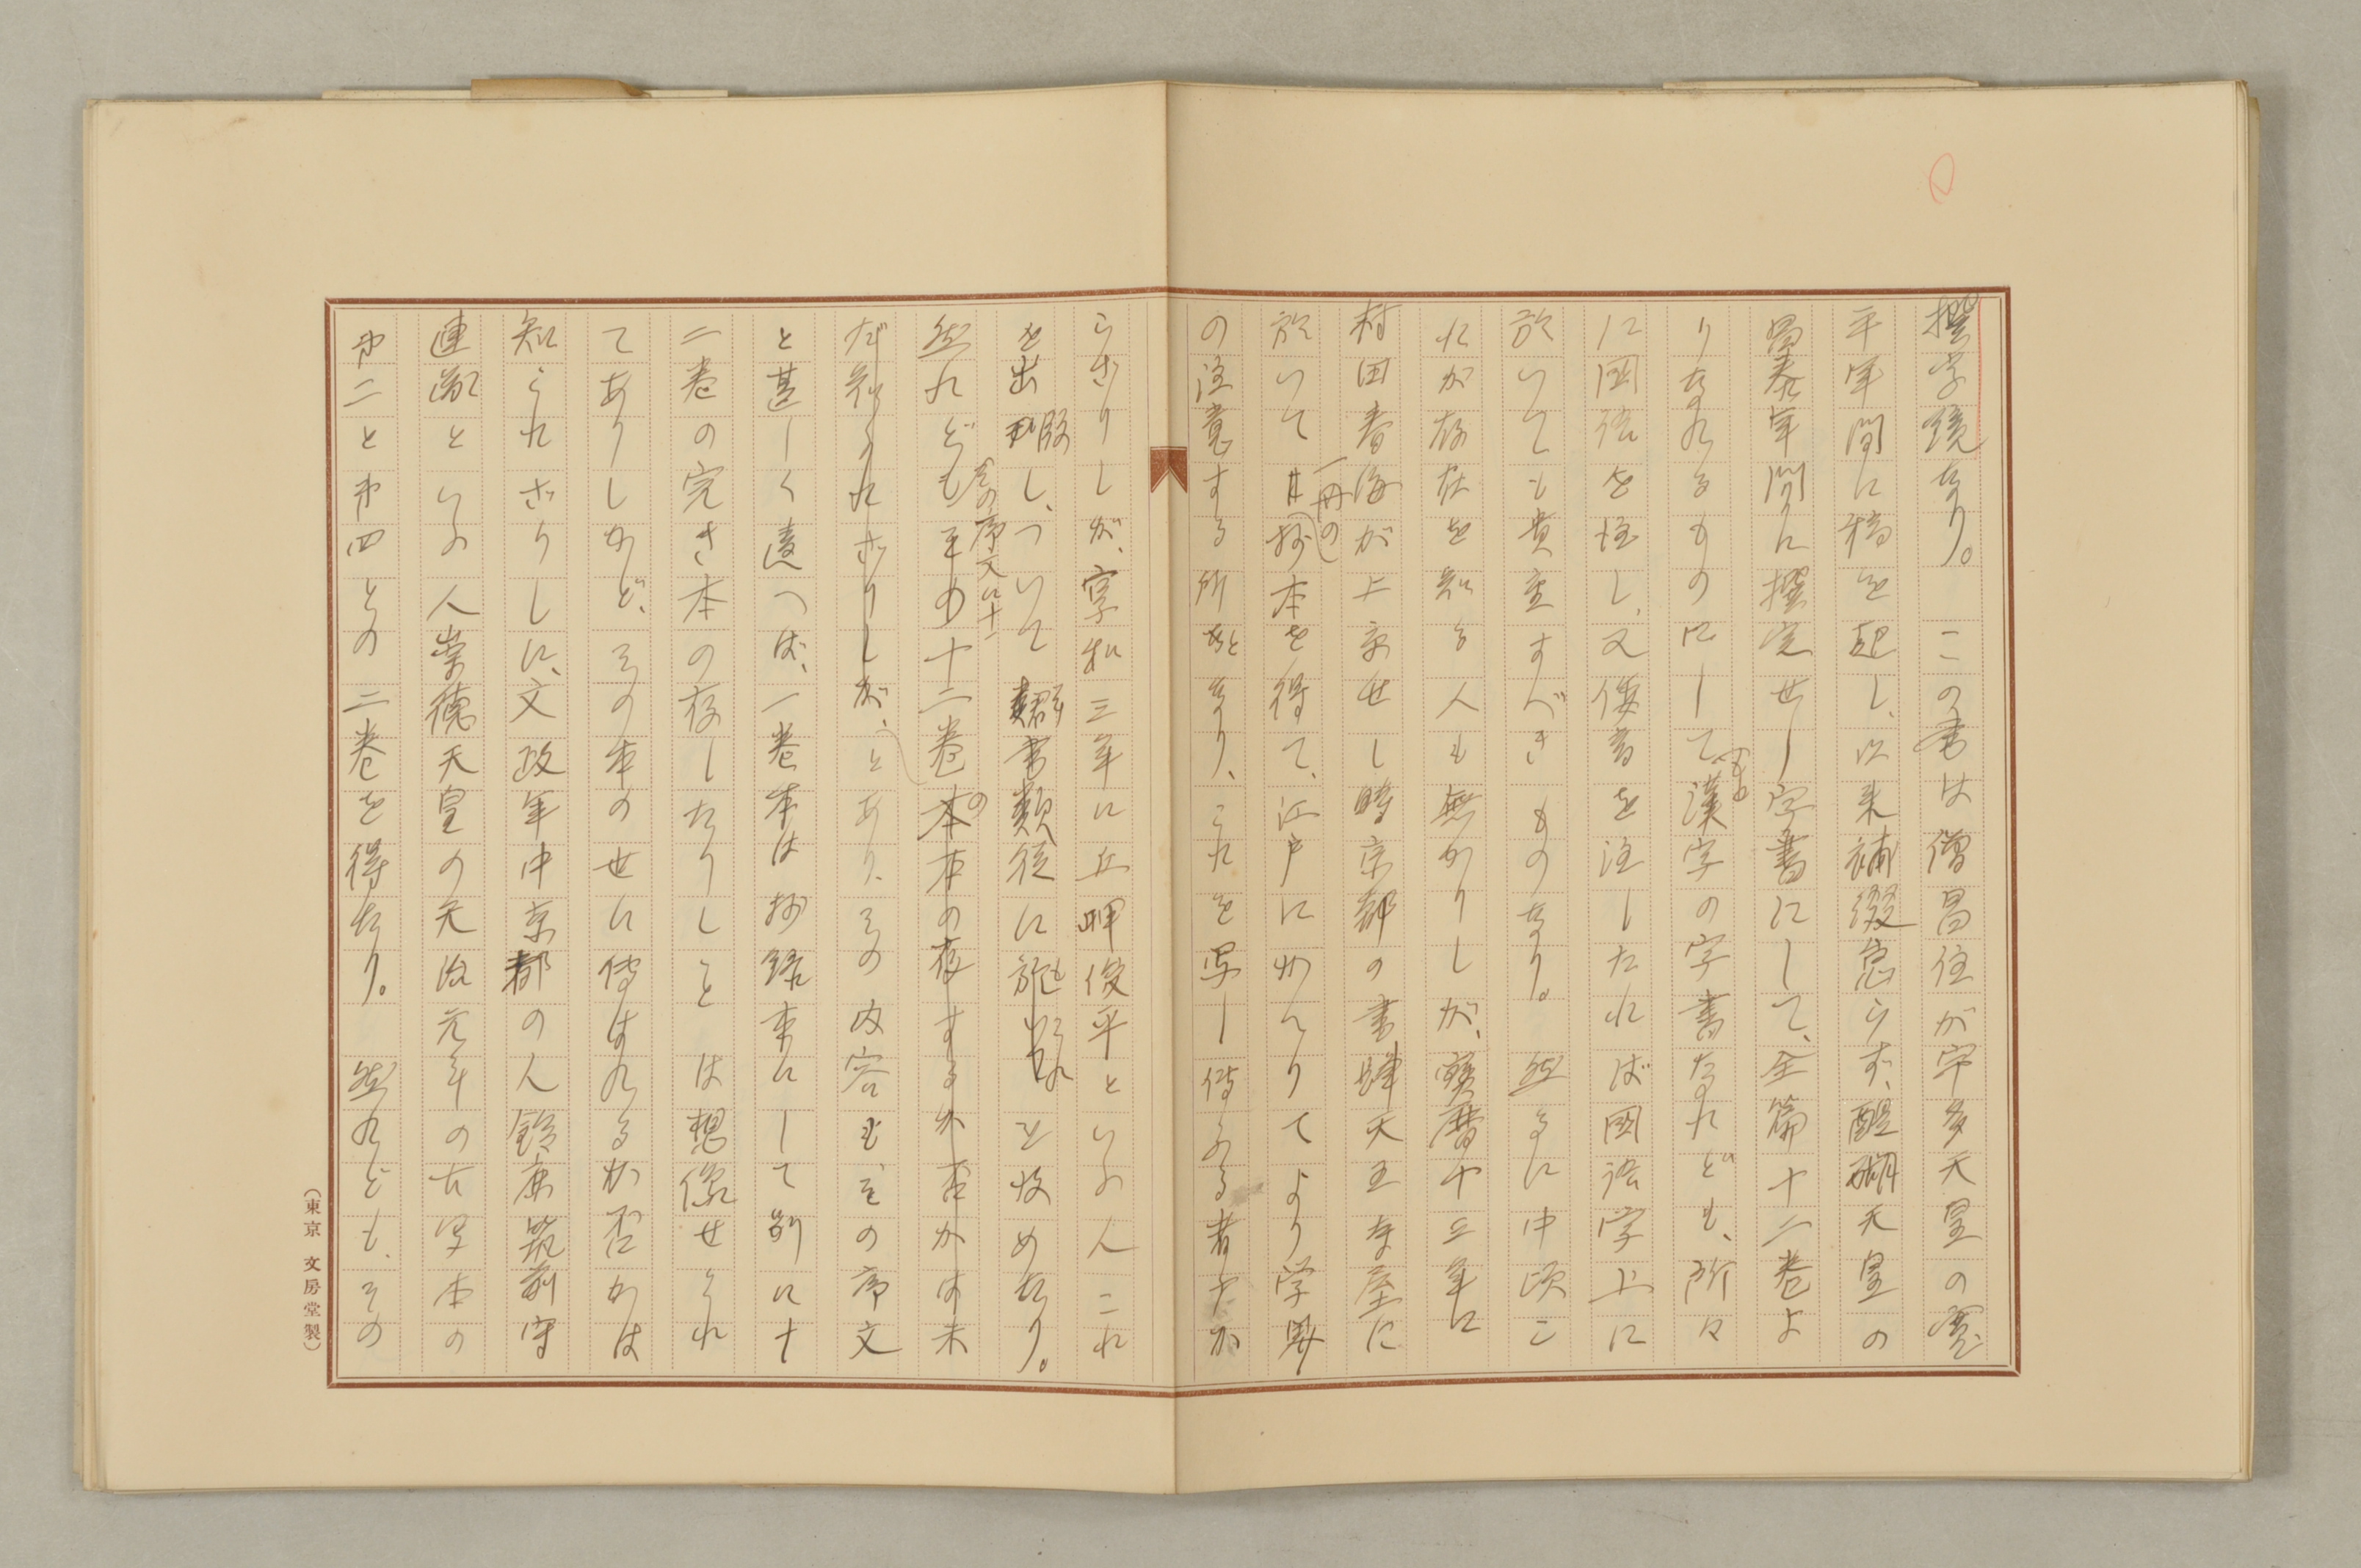 撰字鏡なり。　この書は僧昌住が宇多天皇の寛
平年間に稿を起し、以来補綴怠らず、醍醐天皇の
昌泰年間に撰定せし字書にして、全篇十二巻よ
りなれるものにして漢字の字書なれども、所々
に国語を注し、又倭音を注したれば國語学上に
於いても貴重すべきものなり。　然るに中頃こ
れが存在を知る人も無かりしが、寳暦十三年に
村田春海が上京せし時京都の書肆天王寺屋に
於いて一冊の抄本を得て、江戸にかへりてより学界
の注意する所となり、これを写し傳ふる者少か
らざりしが、享和三年に丘岬俊平といふ人これ
を出版し、ついで群書類従にもこれを收めたり。
然れどもその序文に十二巻の本の存するか否かは未
だ知られざりしが、とあり、その内容も、その序文
と甚しく違へば、一巻本は抄録本にして別に十
二巻の完き本の存したりしことは想像せられ
てありしかど、その本の世に傳はれるか否かは
知られざりしに、文政年中京都の人鈴鹿筑前守
連胤といふ人崇德天皇の天治元年の古写本の
第二と第四との二巻を得たり。　然れども、その
（東京　文房堂製）